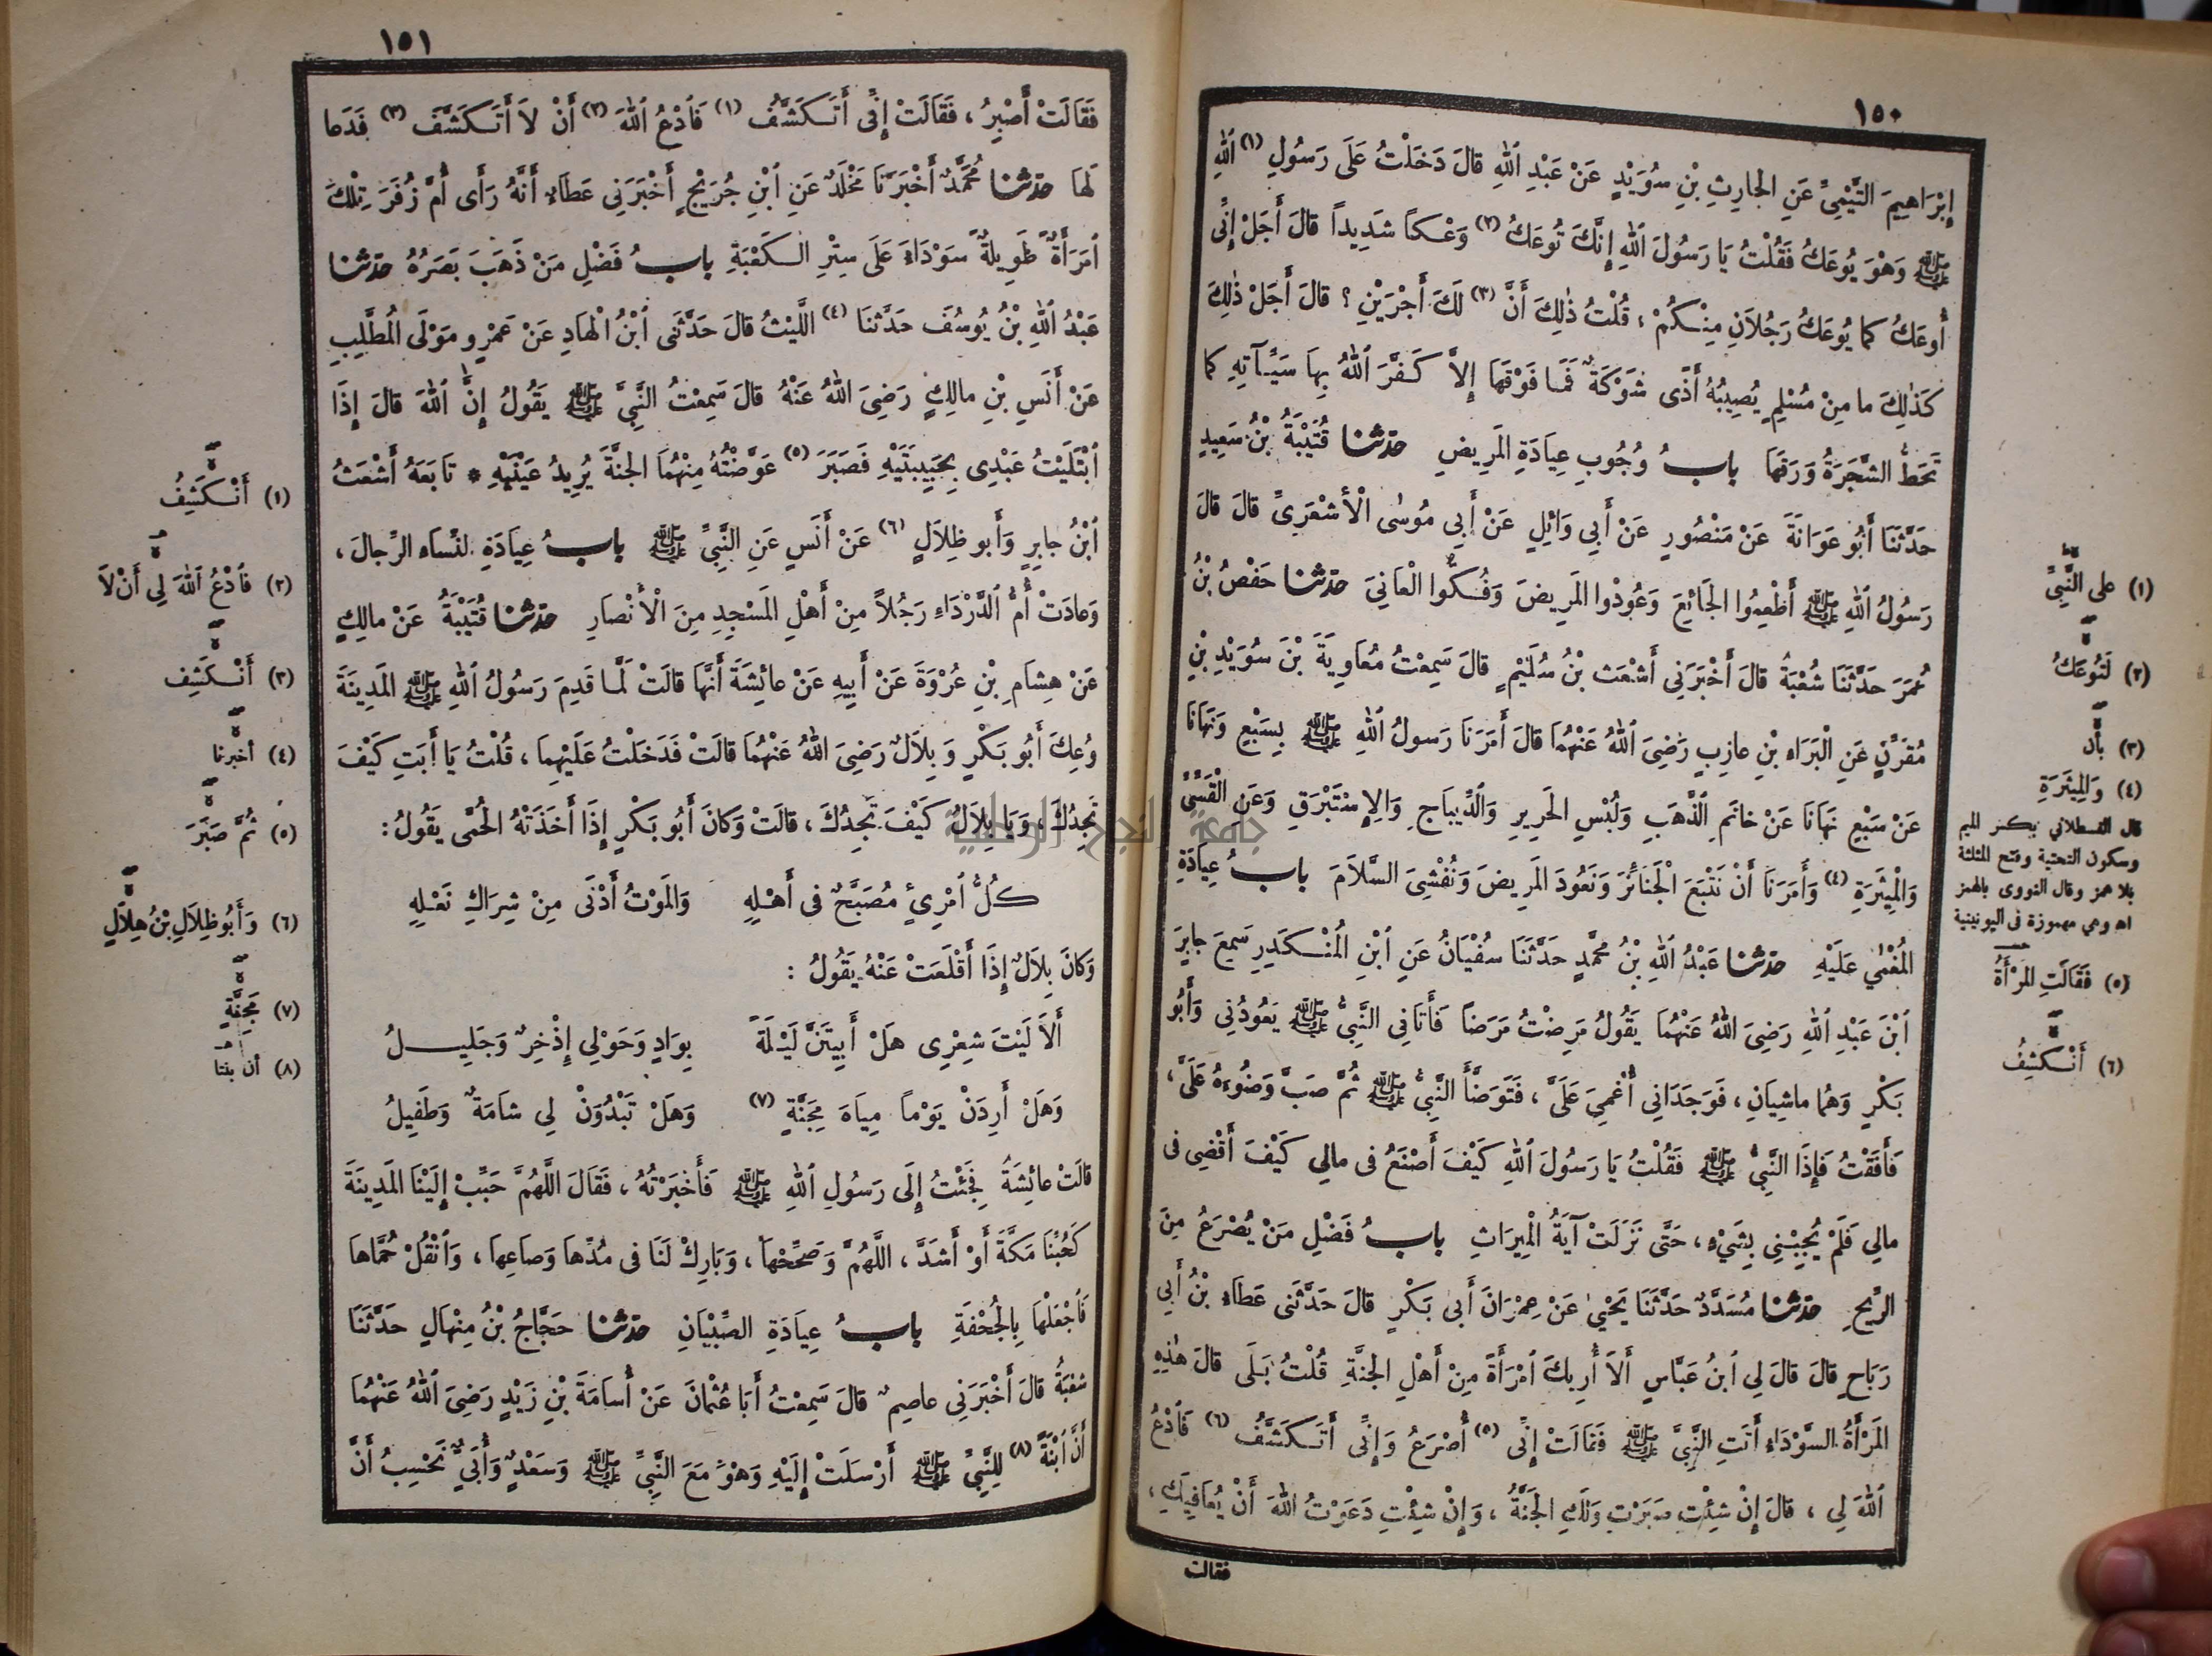 ١٥٠
إِبْرَاهِيمَ التَّيْمِيِّ عَنِ الحَارِثِ بْنِ سُوَيْدٍ عَنْ عَبْدِ ٱللهِ قالَ دَخَلْتُ عَلَى رَسُولِ (١) ٱللهِ
ﷺ وَهْوَ يُوعَكُ فَقُلْتُ يَا رَسُولَ ٱللهِ إِنَّكَ تُوعَكُ (٢) وَعْكاً شَدِيداً قالَ أَجَلْ إِنِّى
أُوعَكُ كما يُوعَكُ رَجُلاَنِ مِنْكُمْ ، قُلْتُ ذٰلِكَ أَنَّ (٣) لَكَ أَجْرَيْنِ ؟ قالَ أَجَلْ ذٰلِكَ
كَذٰلِكَ ما مِنْ مُسْلِمٍ يُصِيبُهُ أَذًى شَوْكَةٌ فَمَا فَوْقَهَا إِلاَّ كَفَّرَ ٱللهُ بِهَا سَيِّآتِهِ كما
تَحُطُّ الشَّجَرَةُ وَرَقَهَا بابُ وُجُوبِ عِيَادَةِ المَرِيضِ حدّثنا قُتَيْبَةُ بْنُ سَعِيدٍ
حَدَّثَنَا أَبُو عَوَانَةَ عَنْ مَنْصُورٍ عَنْ أَبِي وَائِلٍ عَنْ أَبِي مُوسٰى الْأَشْعَرِيِّ قالَ قالَ
رَسُولُ ٱللهِ ﷺ أَطْعِمُوا الجَائِعَ وَعُودُوا المَرِيضَ وَفُكُّوا الْعَانِيَ حدّثنا حَفْصُ بْنُ
عُمَرَ حَدَّثَنَا شُعْبَةُ قالَ أَخْبَرَنِي أَشْعَثُ بْنُ سُلَيْمٍ قالَ سَمِعْتُ مُعَاوِيَةَ بْنَ سُوَيْدِ بْنِ
مُقَرِّنٍ عَنِ الْبَرَاءِ بْنِ عازِبٍ رَضِيَ ٱللهُ عَنْهُمَا قالَ أَمَرَنَا رَسولُ ٱللهِ ﷺ بِسَبْعٍ وَنَهَانَا
عَنْ سَبْعٍ نَهَانَا عَنْ خاتَمِ الذَّهَبِ وَلُبْسِ الحَرِيرِ وَالدِّيبَاجِ وَالإِسْتَبْرَقِ وَعَنِ الْقَسِّيِّ
وَالْمِيثَرَةِ (٤) وَأَمَرَنَا أَنْ نَتْبَعَ الْجَنَائِزَ وَنَعُودَ المَرِيضَ وَنُفْشِيَ السَّلاَمَ بابُ عِيَادَةِ
المُغْمٰى عَلَيْهِ حدّثنا عَبْدُ ٱللهِ بْنُ مُحَمَّدٍ حَدَّثَنَا سُفْيَانُ عَنِ ٱبْنِ المُنْكَدِرِ سَمِعَ جابِرَ
ٱبْنَ عَبْدِ ٱللهِ رَضِيَ ٱللهُ عَنْهُمَا يَقُولُ مَرِضْتُ مَرَضاً فَأَتَانِي النَّبِيُّ ﷺ يَعُودُنِي وَأَبُو
بَكْرٍ وَهُما ماشِيَانِ ، فَوَجَدَانِي أُغْمِيَ عَلَيَّ ، فَتَوَضَّأَ النَّبِيُّ ﷺ ثُمَّ صَبَّ وَضُوءَهُ عَلَيَّ ،
فَأَفَقْتُ فَإِذَا النَّبِيُّ ﷺ فَقُلْتُ يَا رَسُولَ ٱللهِ كَيْفَ أَصْنَعُ فى مالِي كَيْفَ أَقْضِى فى
مالِي فَلَمْ يُجِبْنِي بِشَيْءٍ ، حَتَّى نَزَلَتْ آيَةُ الْمِيرَاثِ بابُ فَضْلِ مَنْ يُصْرَعُ مِنَ
الرِّيحِ حدّثنا مُسَدَّدٌ حَدَّثَنَا يَحْيىٰ عَنْ عِمْرَانَ أَبِى بَكْرٍ قالَ حَدَّثَنى عَطَاءُ بْنُ أَبِي
رَبَاحٍ قالَ قالَ لِى ٱبْنُ عَبَّاسٍ أَلاَ أُرِيكَ ٱمْرَأَةً مِنْ أَهْلِ الجَنَّةِ قُلْتُ بَلَى قالَ هٰذِهِ
المَرْأَةُ السَّوْدَاءُ أَتَتِ النَّبِيَّ ﷺ فَقَالَتْ إِنِّى (٥) أُصْرَعُ وَإِنِّى أَتَكَشَّفُ (٦) فَٱدْعُ
ٱللهَ لِي ، قالَ إِنْ شِئْتِ صَبَرْتِ وَلَكِ الجَنَّةُ ، وَإِنْ شِئْتِ دَعَوْتُ ٱللهَ أَنْ يُعَافِيَكِ ،
فقالت
(١) على النَّبِيِّ
(٢) لَتُوعَكُ
(٣) بأن
(٤) وَالمِيثَرَةِ
قال القسطلانى بكسر الميم
وسكون التحتية وفتح المثلثة
بلا همز وقال النووى بالهمز
اه وهي مهموزة فى اليونينية
(٥) فَقَالَتِ المَرْأَةُ
(٦) أَنْكَشِفُ
١٥١
فَقَالَتْ أَصْبِرُ ، فَقَالَتْ إِنِّى أَتَكَشَّفُ (١) فَٱدْعُ ٱللهَ (٢) أَنْ لاَ أَتَكَشَّفَ (٣) فَدَعا
لَهَا حدّثنا مُحَمَّدٌ أَخْبَرَنَا مَخْلَدٌ عَنِ ٱبْنِ جُرَيْجٍ أَخْبَرَنِي عَطَاءٌ أَنَّهُ رَأَى أُمَّ زُفَرَ تِلْكَ
ٱمْرَأَةٌ طَوِيلَةٌ سَوْدَاءُ عَلَى سِتْرِ الْكَعْبَةِ بابُ فَضْلِ مَنْ ذَهَبَ بَصَرُهُ حدّثنا
عَبْدُ ٱللهِ بْنُ يُوسُفَ حَدَّثَنَا (٤) اللَّيْثُ قالَ حَدَّثَنى ٱبْنُ الْهَادِ عَنْ عَمْرٍو مَوْلَى المُطَّلِبِ
عَنْ أَنَسِ بْنِ مالِكٍ رَضِيَ ٱللهُ عَنْهُ قالَ سَمِعْتُ النَّبِيَّ ﷺ يَقُولُ إِنَّ ٱللهَ قالَ إِذَا
ٱبْتَلَيْتُ عَبْدِى بِحَبِيبَتَيْهِ فَصَبَرَ (٥) عَوَّضْتُهُ مِنْهُمَا الجَنَّةَ يُرِيدُ عَيْنَيْهِ * تَابَعَهُ أَشْعَثُ
ٱبْنُ جابِرٍ وَأَبو ظِلاَلٍ (٦) عَنْ أَنَسٍ عَنِ النَّبِيِّ ﷺ بابُ عِيَادَةِ النِّسَاءِ الرِّجالَ ،
وَعادَتْ أُمُّ ٱلدَّرْدَاءِ رَجُلاً مِنْ أَهْلِ المَسْجِدِ مِنَ الْأَنْصَارِ حدّثنا قُتَيْبَةُ عَنْ مالِكٍ
عَنْ هِشَامِ بْنِ عُرْوَةَ عَنْ أَبِيهِ عَنْ عائِشَةَ أَنَّهَا قالَتْ لَمَّا قَدِمَ رَسُولُ ٱللهِ ﷺ المَدِينَةَ
وُعِكَ أَبُو بَكْرٍ وَبِلاَلٌ رَضِيَ ٱللهُ عَنْهُمَا قالَتْ فَدَخَلْتُ عَلَيْهِمَا ، قُلْتُ يَا أَبَتِ كَيْفَ
تَجِدُكَ ، وَيَا بِلاَلُ كَيْفَ تَجِدُكَ ، قالَتْ وَكانَ أَبُو بَكْرٍ إِذَا أَخَذَتْهُ الْحُمَّى يَقُولُ :
كُلُّ ٱمْرِئٍ مُصَبَّحٌ فى أَهْلِهِ وَالمَوْتُ أَدْنَى مِنْ شِرَاكِ نَعْلِهِ
وَكانَ بِلاَلٌ إِذَا أَقْلَعَتْ عَنْهُ يَقُولُ :
أَلاَ لَيْتَ شِعْرِى هَلْ أَبِيتَنَّ لَيْلَةً بِوَادٍ وَحَوْلِي إِذْخِرٌ وَجَلِيلُ
وَهَلْ أَرِدَنْ يَوْماً مِيَاهَ مِجَنَّةٍ (٧) وَهَلْ تَبْدُوَنْ لِي شامَةٌ وَطَفِيلُ
قالَتْ عائِشَةُ فَجِئْتُ إِلَى رَسُولِ ٱللهِ ﷺ فَأَخْبَرْتُهُ ، فَقَالَ اللَّهُمَّ حَبِّبْ إِلَيْنَا المَدِينَةَ
كَحُبِّنَا مَكَّةَ أَوْ أَشَدَّ ، اللَّهُمَّ وَصَحِّحْهَا ، وَبَارِكْ لَنَا فى مُدِّهَا وَصَاعِهَا ، وَٱنْقُلْ حُمَّاهَا
فَٱجْعَلْهَا بِالْجُحْفَةِ بابُ عِيَادَةِ الصِّبْيَانِ حدّثنا حَجَّاجُ بْنُ مِنْهَالٍ حَدَّثَنَا
شُعْبَةُ قالَ أَخْبَرَنِي عاصِمٌ قالَ سَمِعْتُ أَبَا عُثْمَانَ عَنْ أُسَامَةَ بْنِ زَيْدٍ رَضِيَ ٱللهُ عَنْهُمَا
أَنَّ ٱبْنَةً (٨) لِلنَّبِيِّ ﷺ أَرْسَلَتْ إِلَيْهِ وَهْوَ مَعَ النَّبِيِّ ﷺ وَسَعْدٌ وَأُبَيٌّ نَحْسِبُ أَنَّ
(١) أَنْكَشِفُ
(٢) فَٱدْعُ ٱللهَ لِي أَنْ لاَ
(٣) أَنْكَشِفَ
(٤) أخبرنا
(٥) ثُمَّ صَبَرَ
(٦) وَأَبُو ظِلاَلِ بْنُ هِلاَلٍ
(٧) مَجِنَّةٍ
(٨) أن بنتا
جامعة النجاح الوطنية